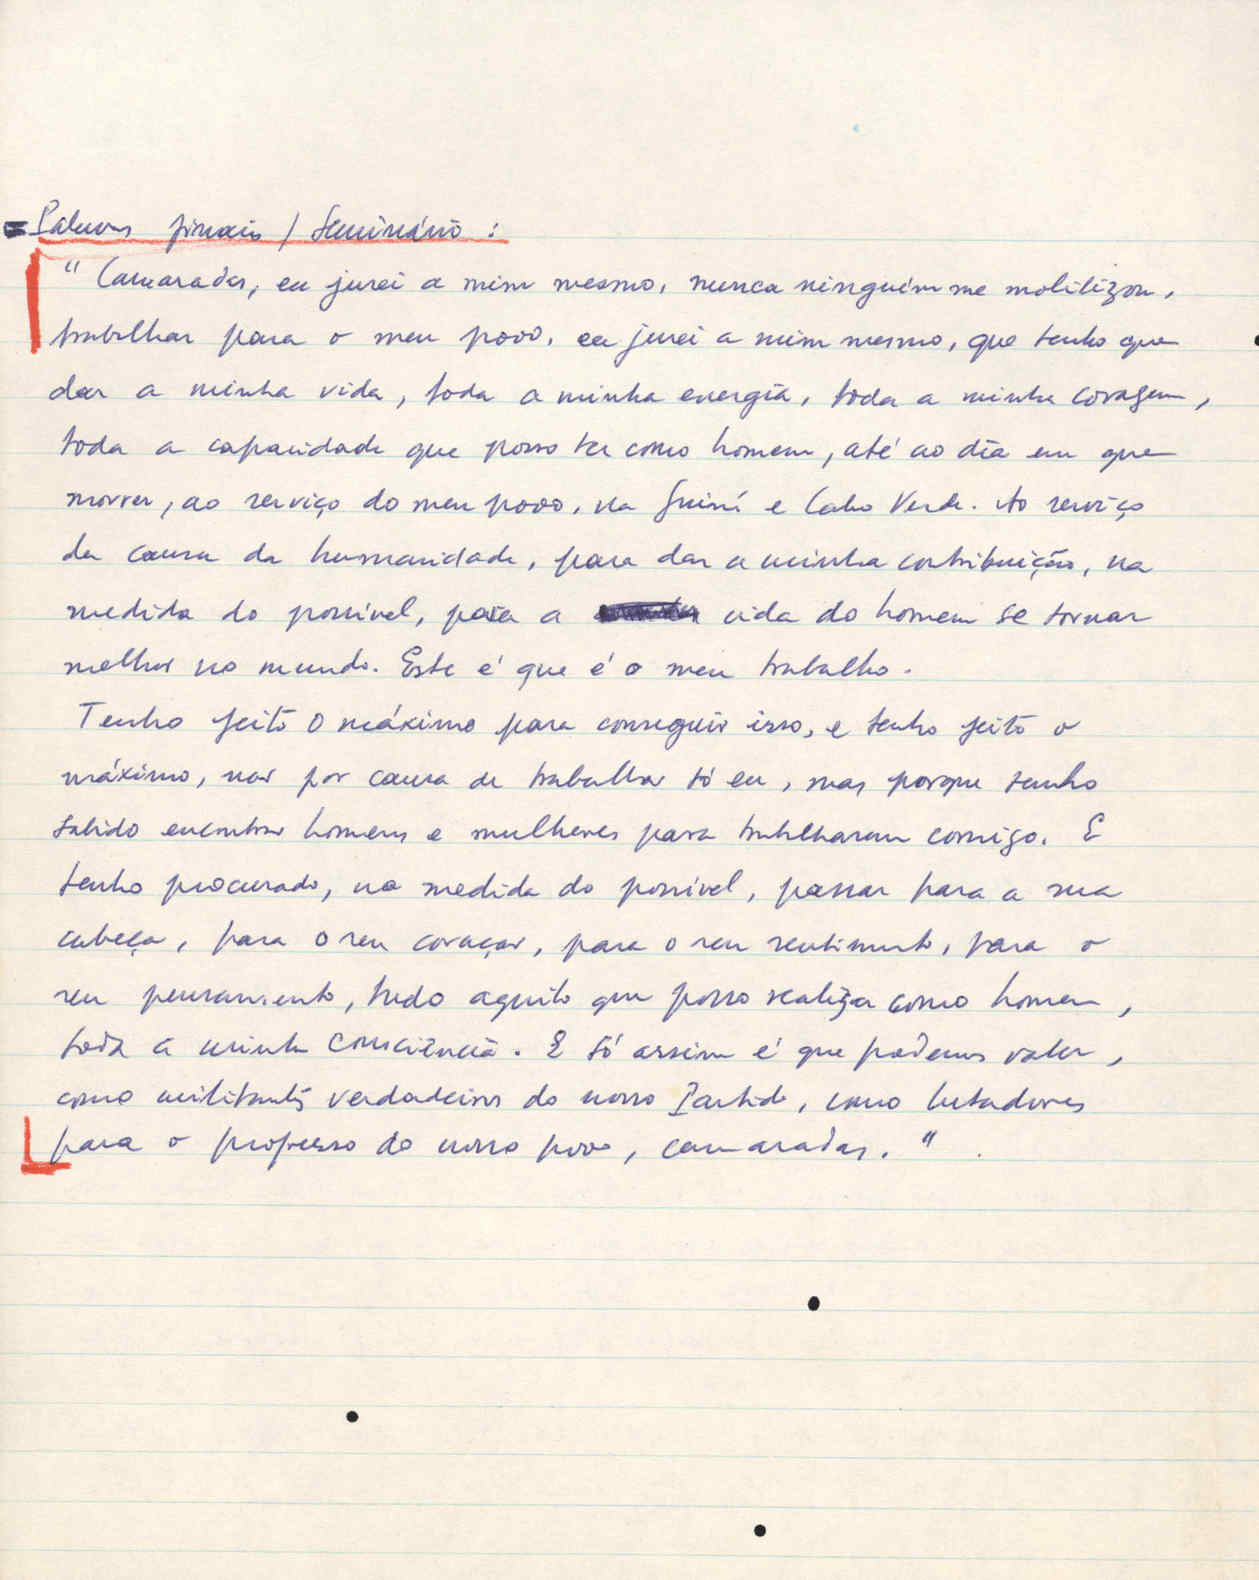 = Palavras finais / Seminário :
" Camaradas, eu jurei a mim mesmo, nunca ninguém me mobilizou,
trabalhar para o meu povo. eu jurei a mim mesmo, que tenho que
dar a minha vida, toda a minha energia, toda a minha coragem,
toda a capacidade que posso ter como homem, até ao dia em que
morrer, ao serviço do meu povo, na Guiné e Cabo Verde. Ao serviço
da causa da humanidade, para dar a minha contribuição, na
medida do possível, para a vida do homem se tornar
melhor no mundo. Este é que é o meu trabalho.
Tenho feito o máximo para conseguir isso, e tenho feito o
máximo, não por causa de trabalhar só eu, mas porque tenho
sabido encontrar homens e mulheres para trabalharem comigo. E
tenho procurado, na medida do possível, passar para a sua
cabeça, para o seu coração, para o seu sentimento, para o
seu pensamento, tudo aquilo que posso realizar como homem,
toda a minha consciência. E só assim é que podemos valer,
como militantes verdadeiros do nosso Partido, como lutadores
para o progresso do nosso povo, camaradas. " .